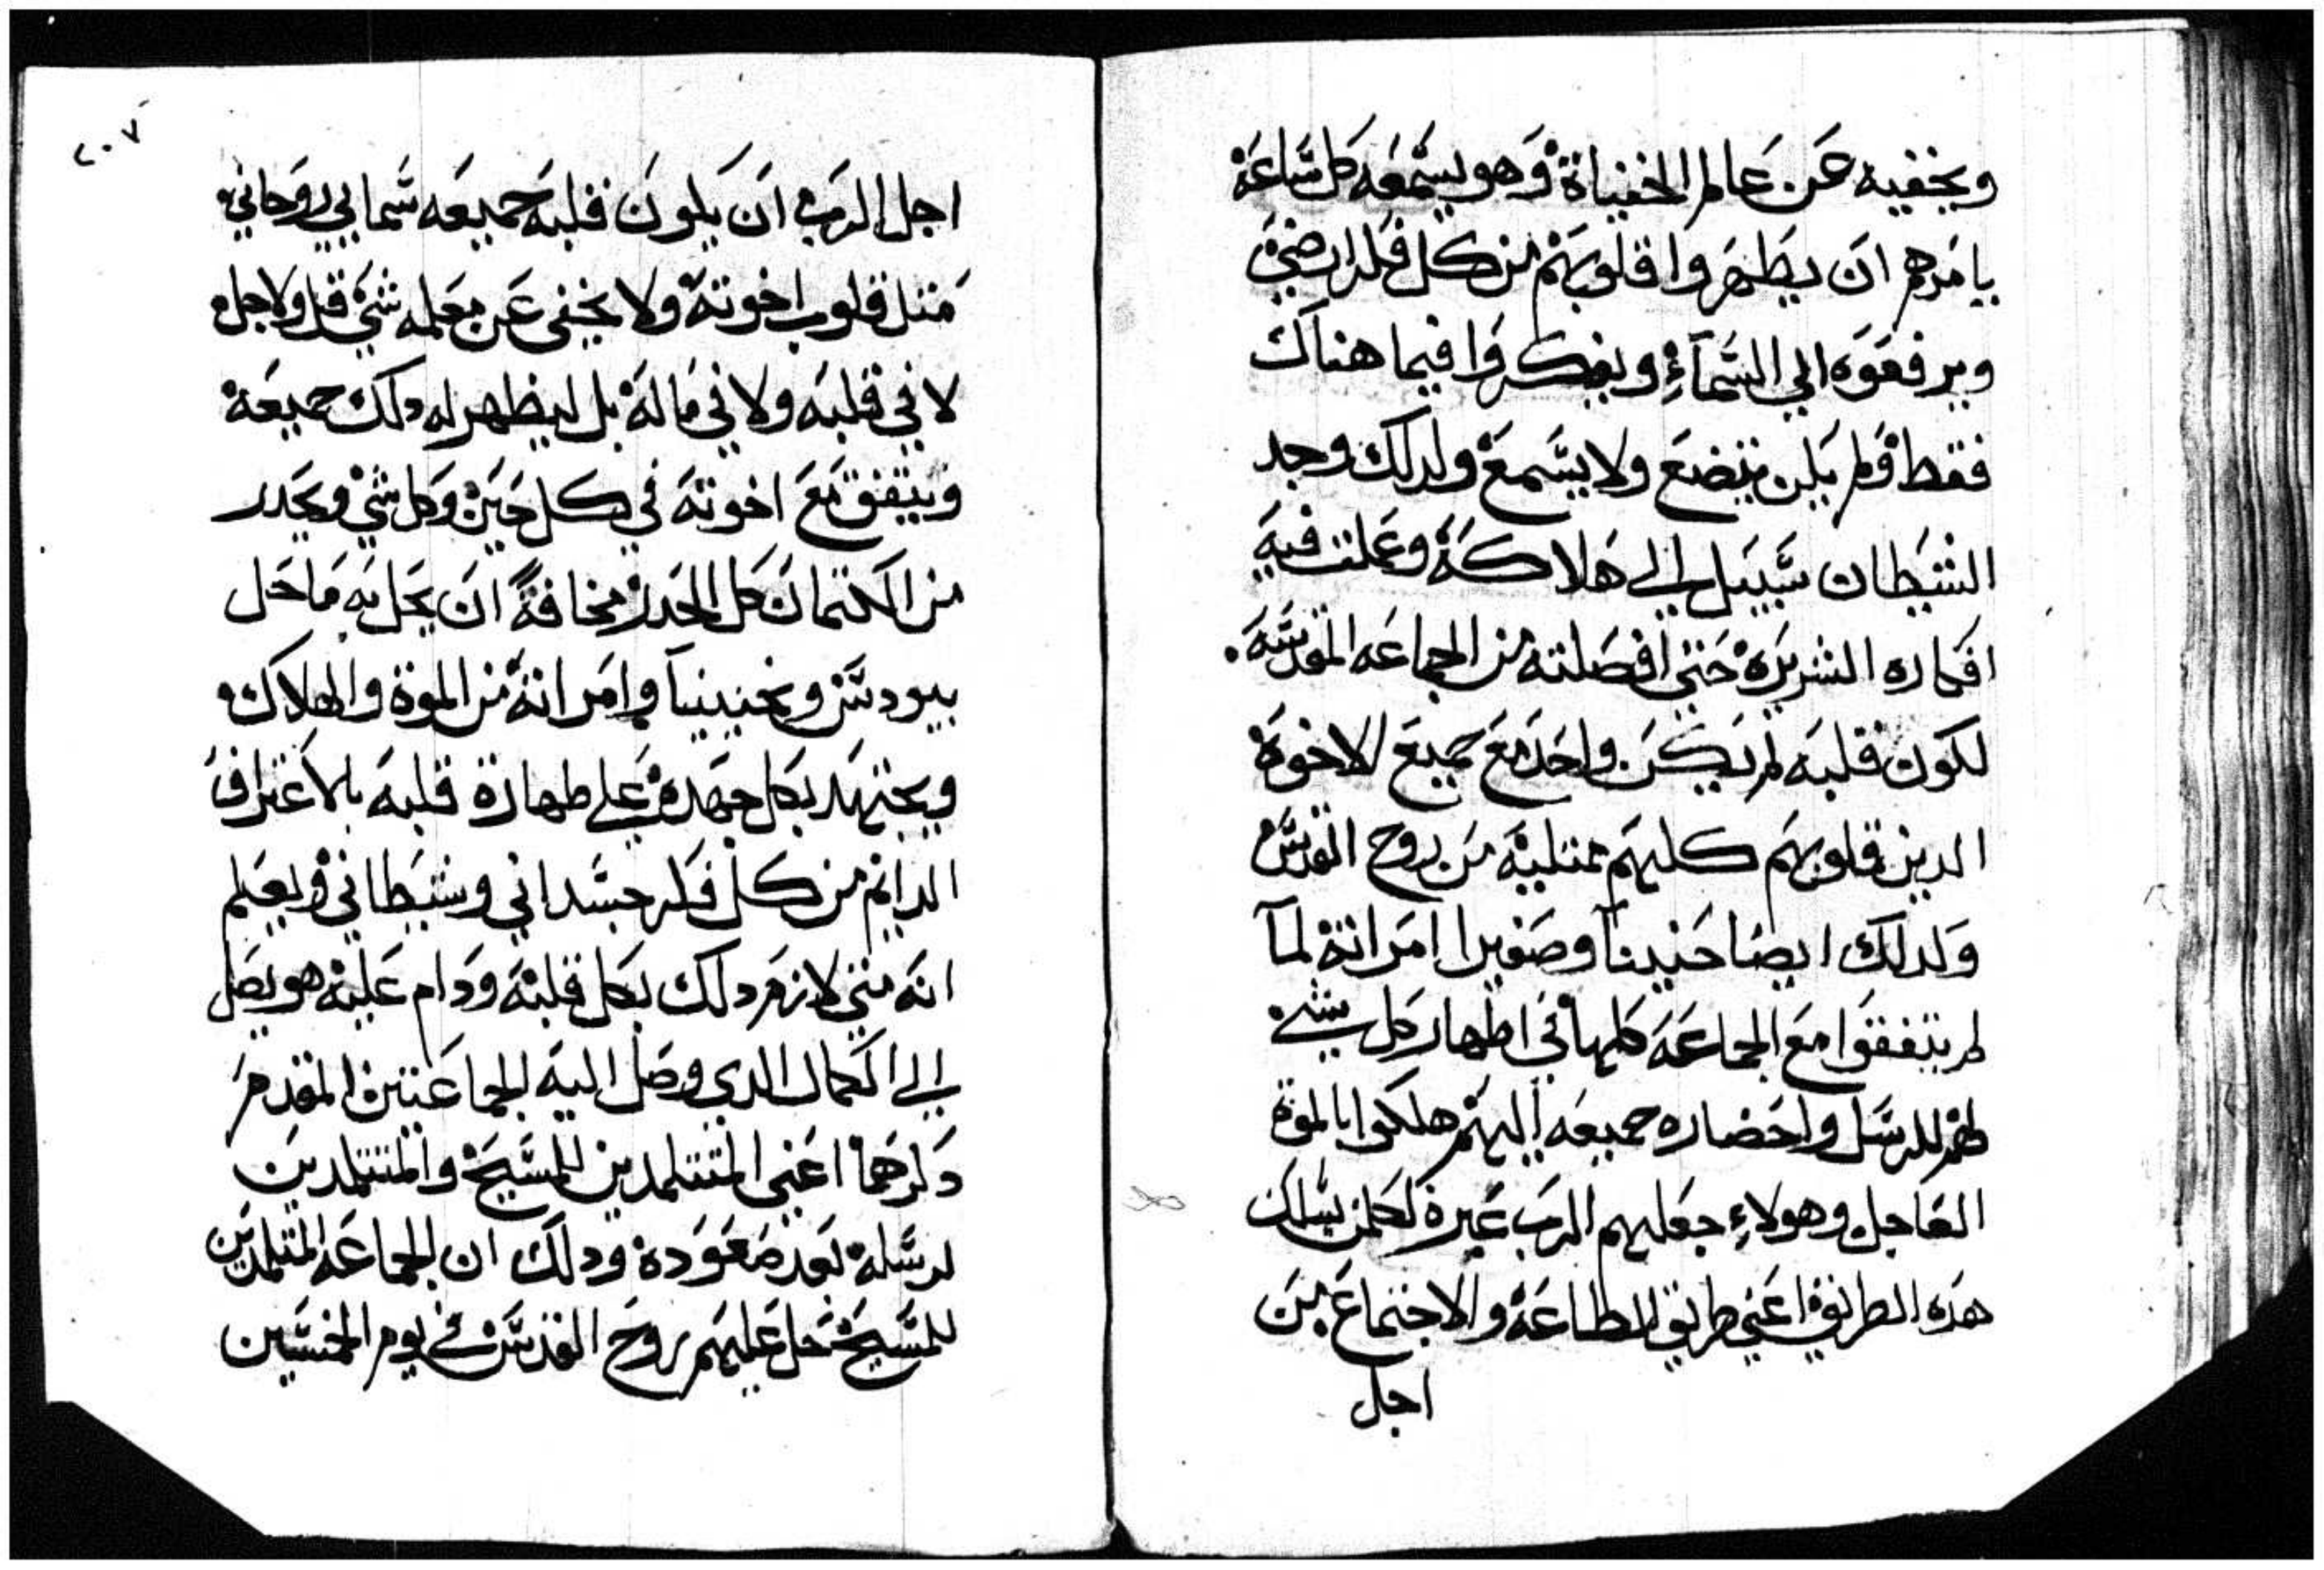 ويخفيه عن عالم الخفياة وهو يسمعه كل ساعة
يامرهم ان يطهروا قلوبهم من كل فكر ارضي
ويرفعوه الي السماء ويفكروا فيما هناك
فقط ولم يكن يتضع ولا يسمع ولدلك وجد
الشيطان سبيل الي هلاكه وعملت فيه
افكاره الشريره حتي افصلته من الجماعه المقدسه
لكون قلبه لم يكن واحد مع جميع الاخوه
الدين قلوبهم كلهم ممتليه من روح القدس
ولدلك ايضا حنينا وصفيرا امراته لما
لم يتفقوا مع الجماعه كلها في اظهار كل شي
لهم للرسل واحضاره جميعه اليهم هلكوا بالموة
العاجل وهولاء جعلهم الرب عبرة لكلمن يسلك
هده الطريقه اعني طريق الطاعه والاجتماع من
اجل
٢٠٧
اجل الرب ان يكون قلبه جميعه سمايي روحاني
مثل قلوب اخوته ولا يخفي عن معلمه شي قل ولا جل
لا في قلبه ولا في ماله بل ليظهر له دلك جميعه
ويتفق مع اخوته في كل حين وكل شي ويحدر
من الكتمان كل الحدر مخافة ان يحل به ما حل
بيودس وبحنينيا وامراته من الموة والهلاك
ويجتهد بكل جهده علي طهارة قلبه بالاعتراف
الدايم من كل فكر جسداني وشيطاني ويعلم
انه متي لازم دلك بكل قلبه ودام عليه هو يصل
الي الكمال الدي وصل اليه الجماعتين المقدم
دكرهما اعني المتتلمدين للمسيح والمتتلمدين
لرسله بعد صعوده ودلك ان الجماعه المتلمدين
للمسيح حل عليهم روح القدس في يوم الخمسين